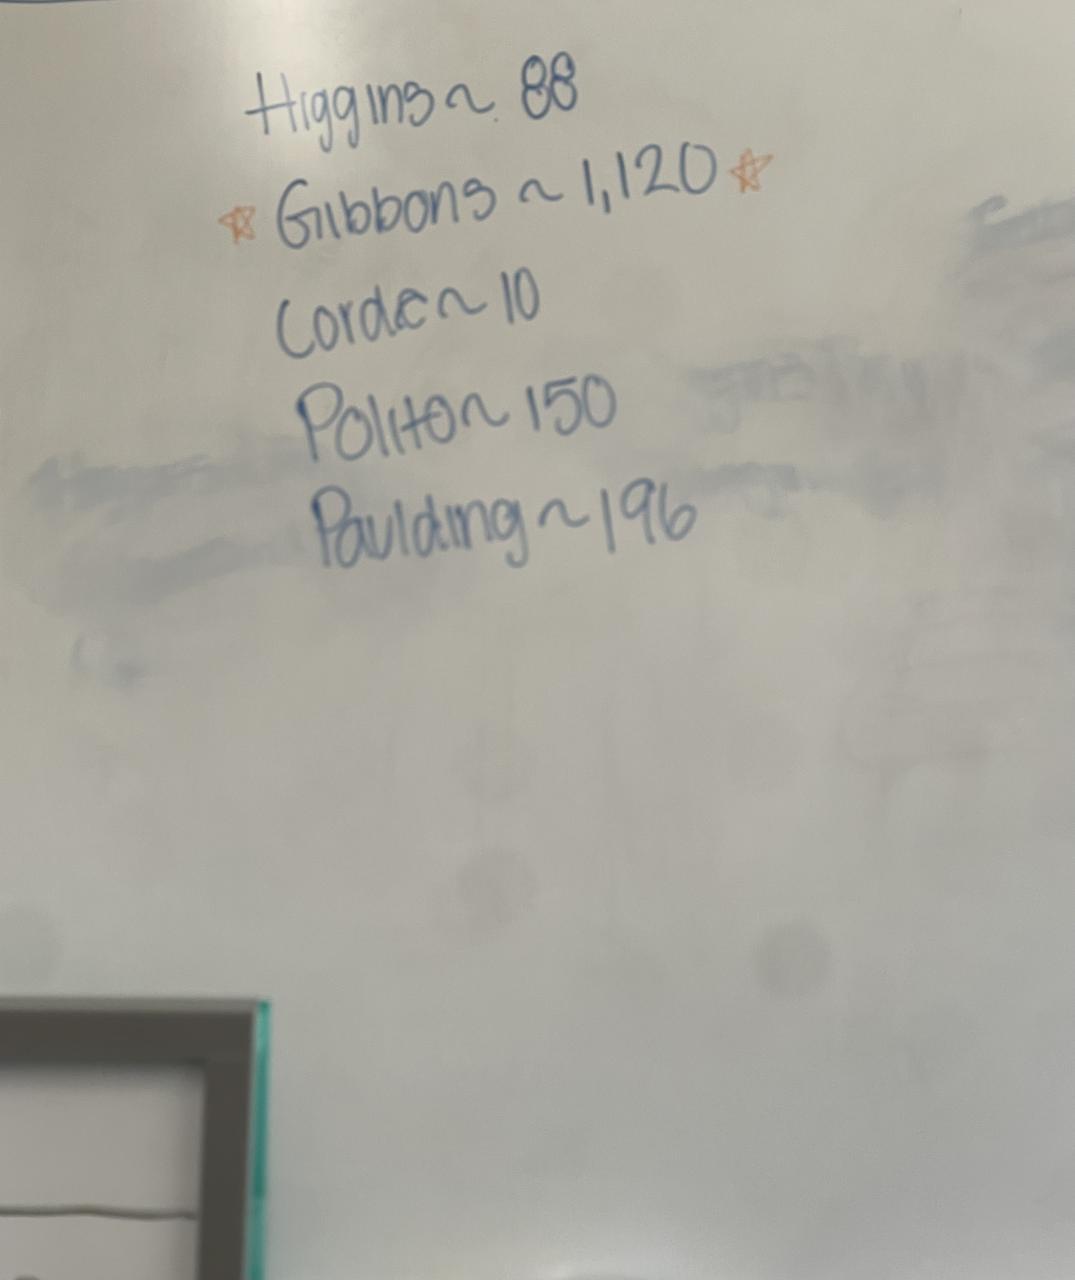 Higgins ~ 88
☆ Gibbons ~ 1,120 ☆
~ 10
Polito ~ 150
Paulding ~ 196